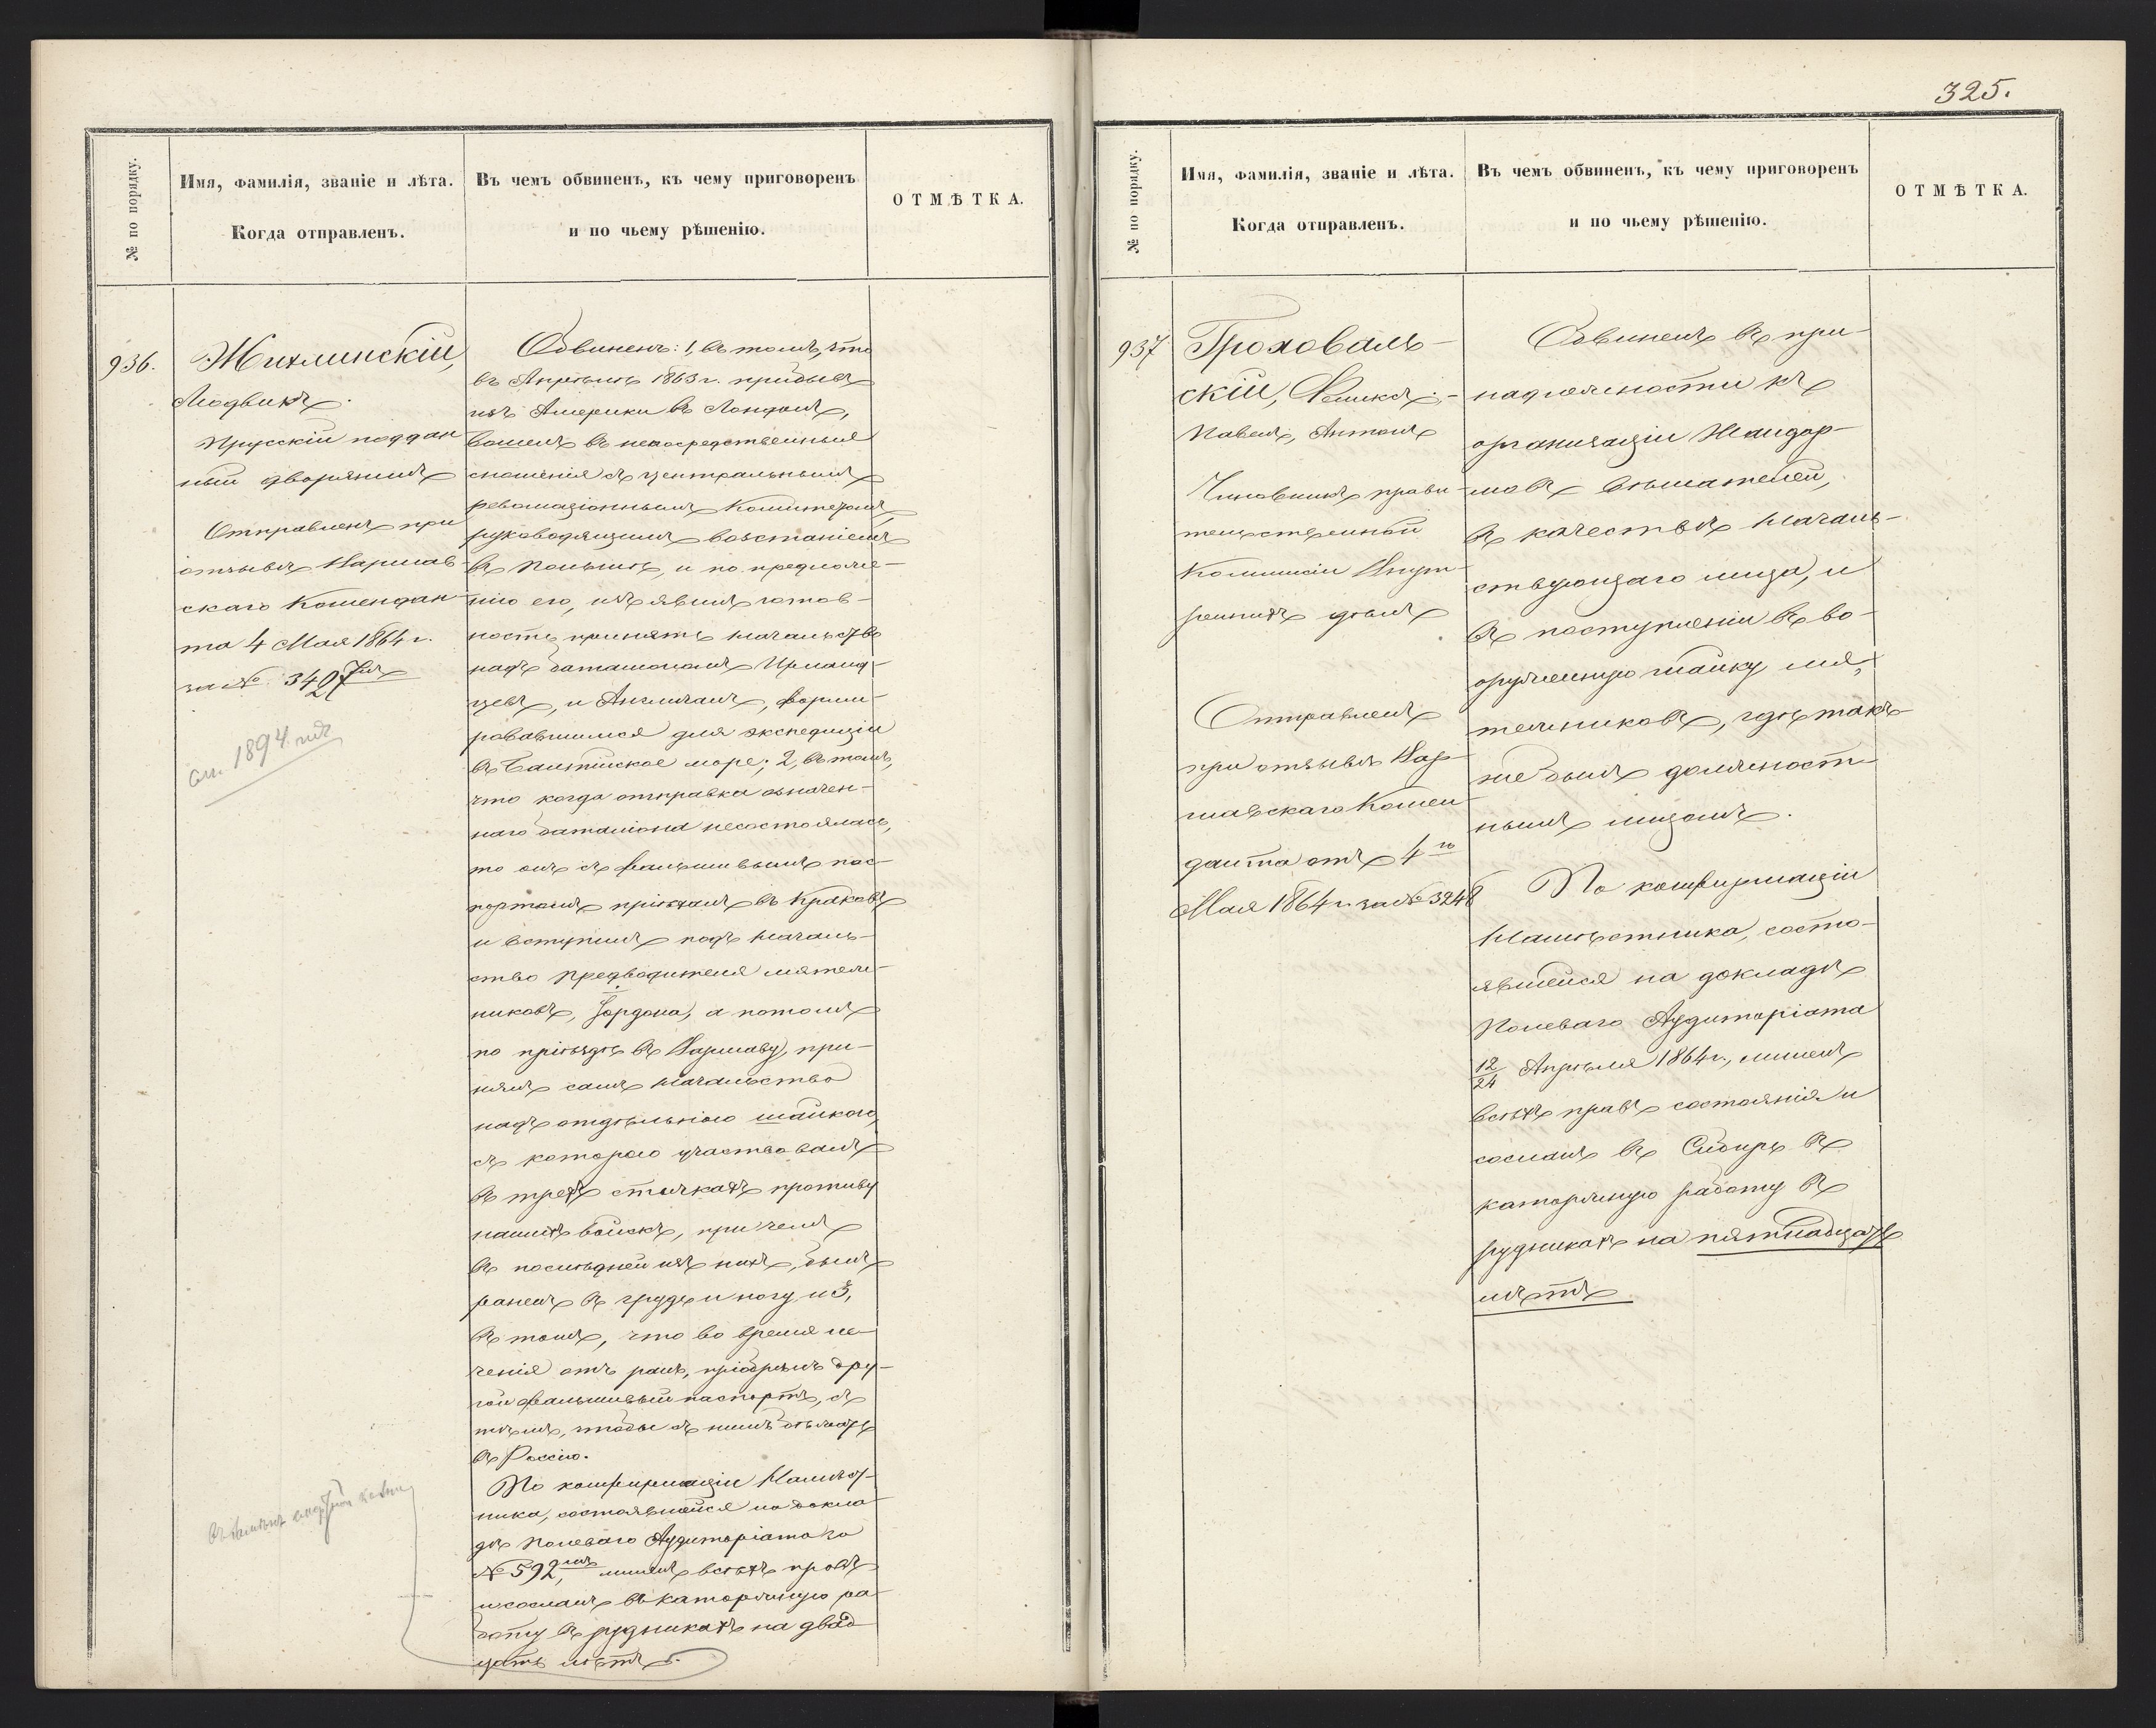 325.
№ по порядку.
Имя, фамилія, званіе и лѣта.
Когда отправленъ.
Въ чемъ обвиненъ, къ чему приговоренъ
и по чьему рѣшенію.
ОТМѢТКА.
936.
Жихлинскій,
Людвикъ.
Прусскій поддан
ный дворянинъ
Отправленъ при
отзывѣ Варшав-
скаго Комендан-
та 4 Мая 1864 г.
за №. 3427мъ
см. 1894 год
Обвиненъ: 1, въ томъ, что
въ Апрѣлѣ 1863 г. прибывъ
изъ Америки въ Лондонъ,
вошелъ въ непосредственныя
сношенія съ центральнымъ
революціоннымъ Комитетомъ,
руководящимъ возстаніемъ
въ Польшѣ, и по предложе-
нію его, изъявилъ готов-
ность принять начальство
надъ баталіономъ Ирланд-
цевъ, и Англичанъ, форми-
ровавшимся для экспедиціи
въ Балтійское море; 2, въ томъ,
что когда отправка означен-
наго баталіона несостоялась,
то онъ съ фальшивымъ пас-
портомъ пріѣхалъ въ Краковъ
и вступилъ подъ началь-
ство предводителя мятеж-
никовъ, Іордана, а потомъ
по пріѣздѣ въ Варшаву, при-
нялъ самъ начальство
надъ отдѣльною шайкою,
съ которою участвовалъ
въ трехъ стычкахъ противу
нашихъ войскъ, при чемъ
въ послѣдней изъ нихъ, былъ
раненъ въ грудь и ногу, и 3,
въ томъ, что во время ле-
ченія отъ ранъ, пріобрѣлъ дру-
гой фальшивый паспортъ, съ
тѣмъ, чтобы съ нимъ бѣжать
въ Россію.
По конфирмаціи Намѣст-
ника, состоявшейся на докла-
дѣ Полеваго Аудиторіата за
№ 592мъ, лишенъ всѣхъ правъ
и сосланъ въ каторжную ра-
боту въ рудникахъ на двад
цать лѣтъ.
№ по порядку.
Имя, фамилія, званіе и лѣта.
Когда отправленъ.
Въ чемъ обвиненъ, къ чему приговоренъ
и по чьему рѣшенію.
ОТМѢТКА.
937
Гроховаль-
скій, Феликсъ,-
Павелъ, Антонъ
Чиновникъ прави-
тельственной
Коммисіи Внут-
реннихъ дѣлъ
Отправленъ
при отзывѣ Вар-
шавскаго Комен-
данта отъ 4го
Мая 1864 г. за № 3248
Обвиненъ въ при-
надлежности къ
организаціи Жандар-
мовъ вѣшателей,
въ качествѣ началь-
ствующаго лица, и
въ поступленіи въ во-
оруженную шайку мя-
тежниковъ, гдѣ так-
же былъ должност-
нымъ лицомъ.
По конфирмаціи
Намѣстника, состо-
явшейся на докладѣ
Полеваго Аудиторіата
12/24 Апрѣля 1864 г., лишенъ
всѣхъ правъ состоянія и
сосланъ въ Сибирь въ
каторжную работу въ
рудникахъ на пятнадцать
лѣтъ